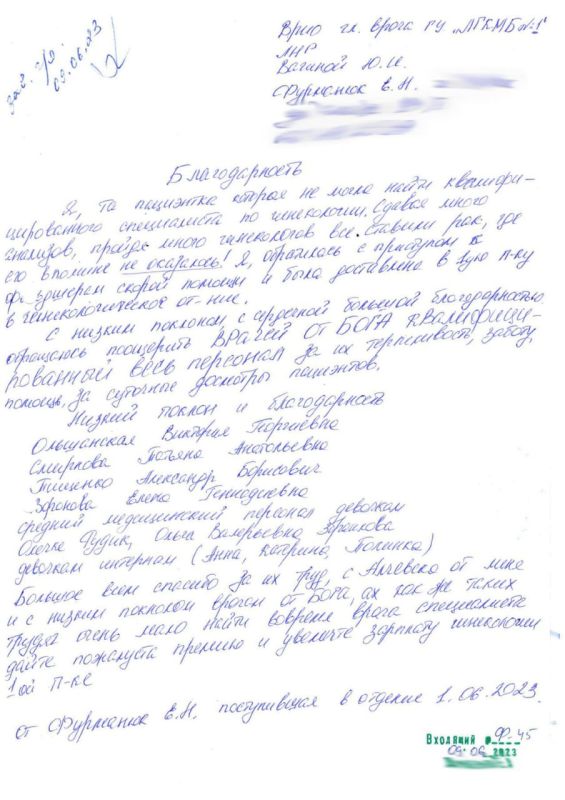 Зав. г/о.
09.06.23
Врио гл. врача ГУ "ЛГКМБ №1"
ЛНР
Вагиной Ю.И.
Фурманюк Е.Н.
Благодарность
Я, та пациэнтка которая не могла найти квалифи-
цированного специалиста по гинекологии. Сдавая много
анализов, пройдя много гинекологов все. Ставили рак, где
его впомине не оказалось! Я, обратилась с приступом к
фельдшерам скорой помощи и была доставлена в 1ую п-ку
в гинекологическое от-ние.
С низким поклоном, с сердечной большой благодарностью
обращаюсь поощерить Врачей ОТ БОГА квалифици-
рованный весь персонал за их терпеливость, заботу,
помощь. За суточные досмотры пациентов.
Низкий поклон и благодарность
Ольшанская Виктория Георгиевна
Смирнова Татьяна Анатольевна
Тищенко Александр Борисович
Елена Геннадиевна
средний медицинский персонал девочкам
Олечке Рудик, Ольга Валерьевна
девочкам интернам (Анна, Катерина, Полинка)
Большое всем спасибо за их труд, с Алчевска от мене
и с низким поклоном врачам от БОГА, ах как же таких
трудга очень мало найти вовремя врача специалиста
дайте пожалуста премию и увеличте зарплату гинекологии
1ой п-ке
от Фурманюк Е.Н. поступившая в отдение 1.06.2023.
Входящий № Ф-45
09.06 2023